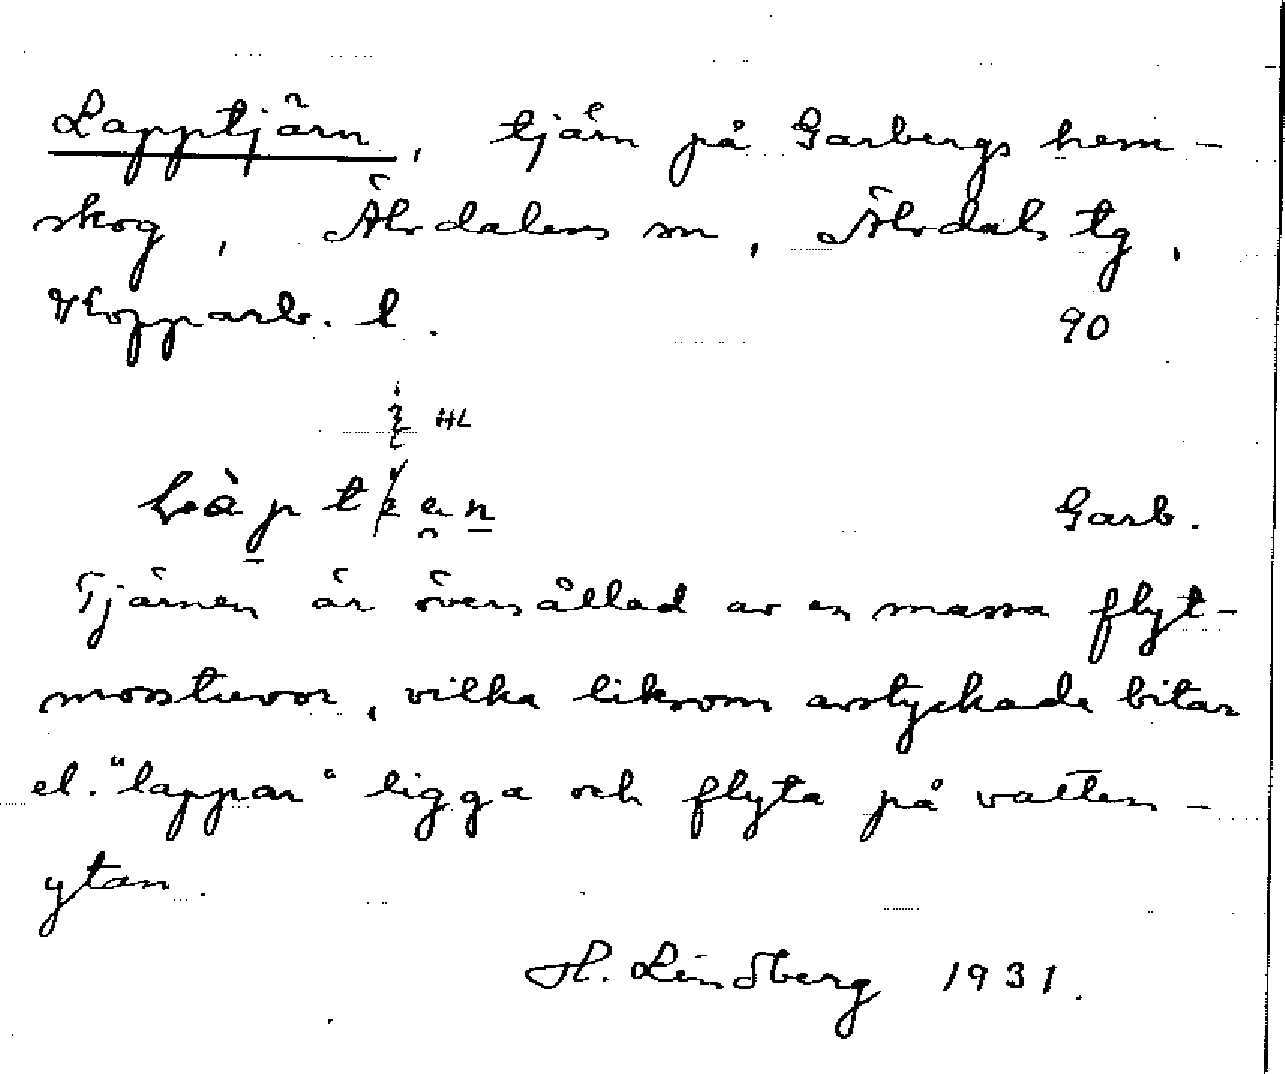 Lapptjärn, tjärn på Garbergs hem-
skog, Älvdalens sn, Älvdals tg,
Kopparb. l. 90
HL
Garb.
Tjärnen är översållad av en massa flyt-
mosstuvor, vilka liksom avstyckade bitar
el. "lappar" ligga och flyta på vatten-
ytan.
H. Lindberg 1931.